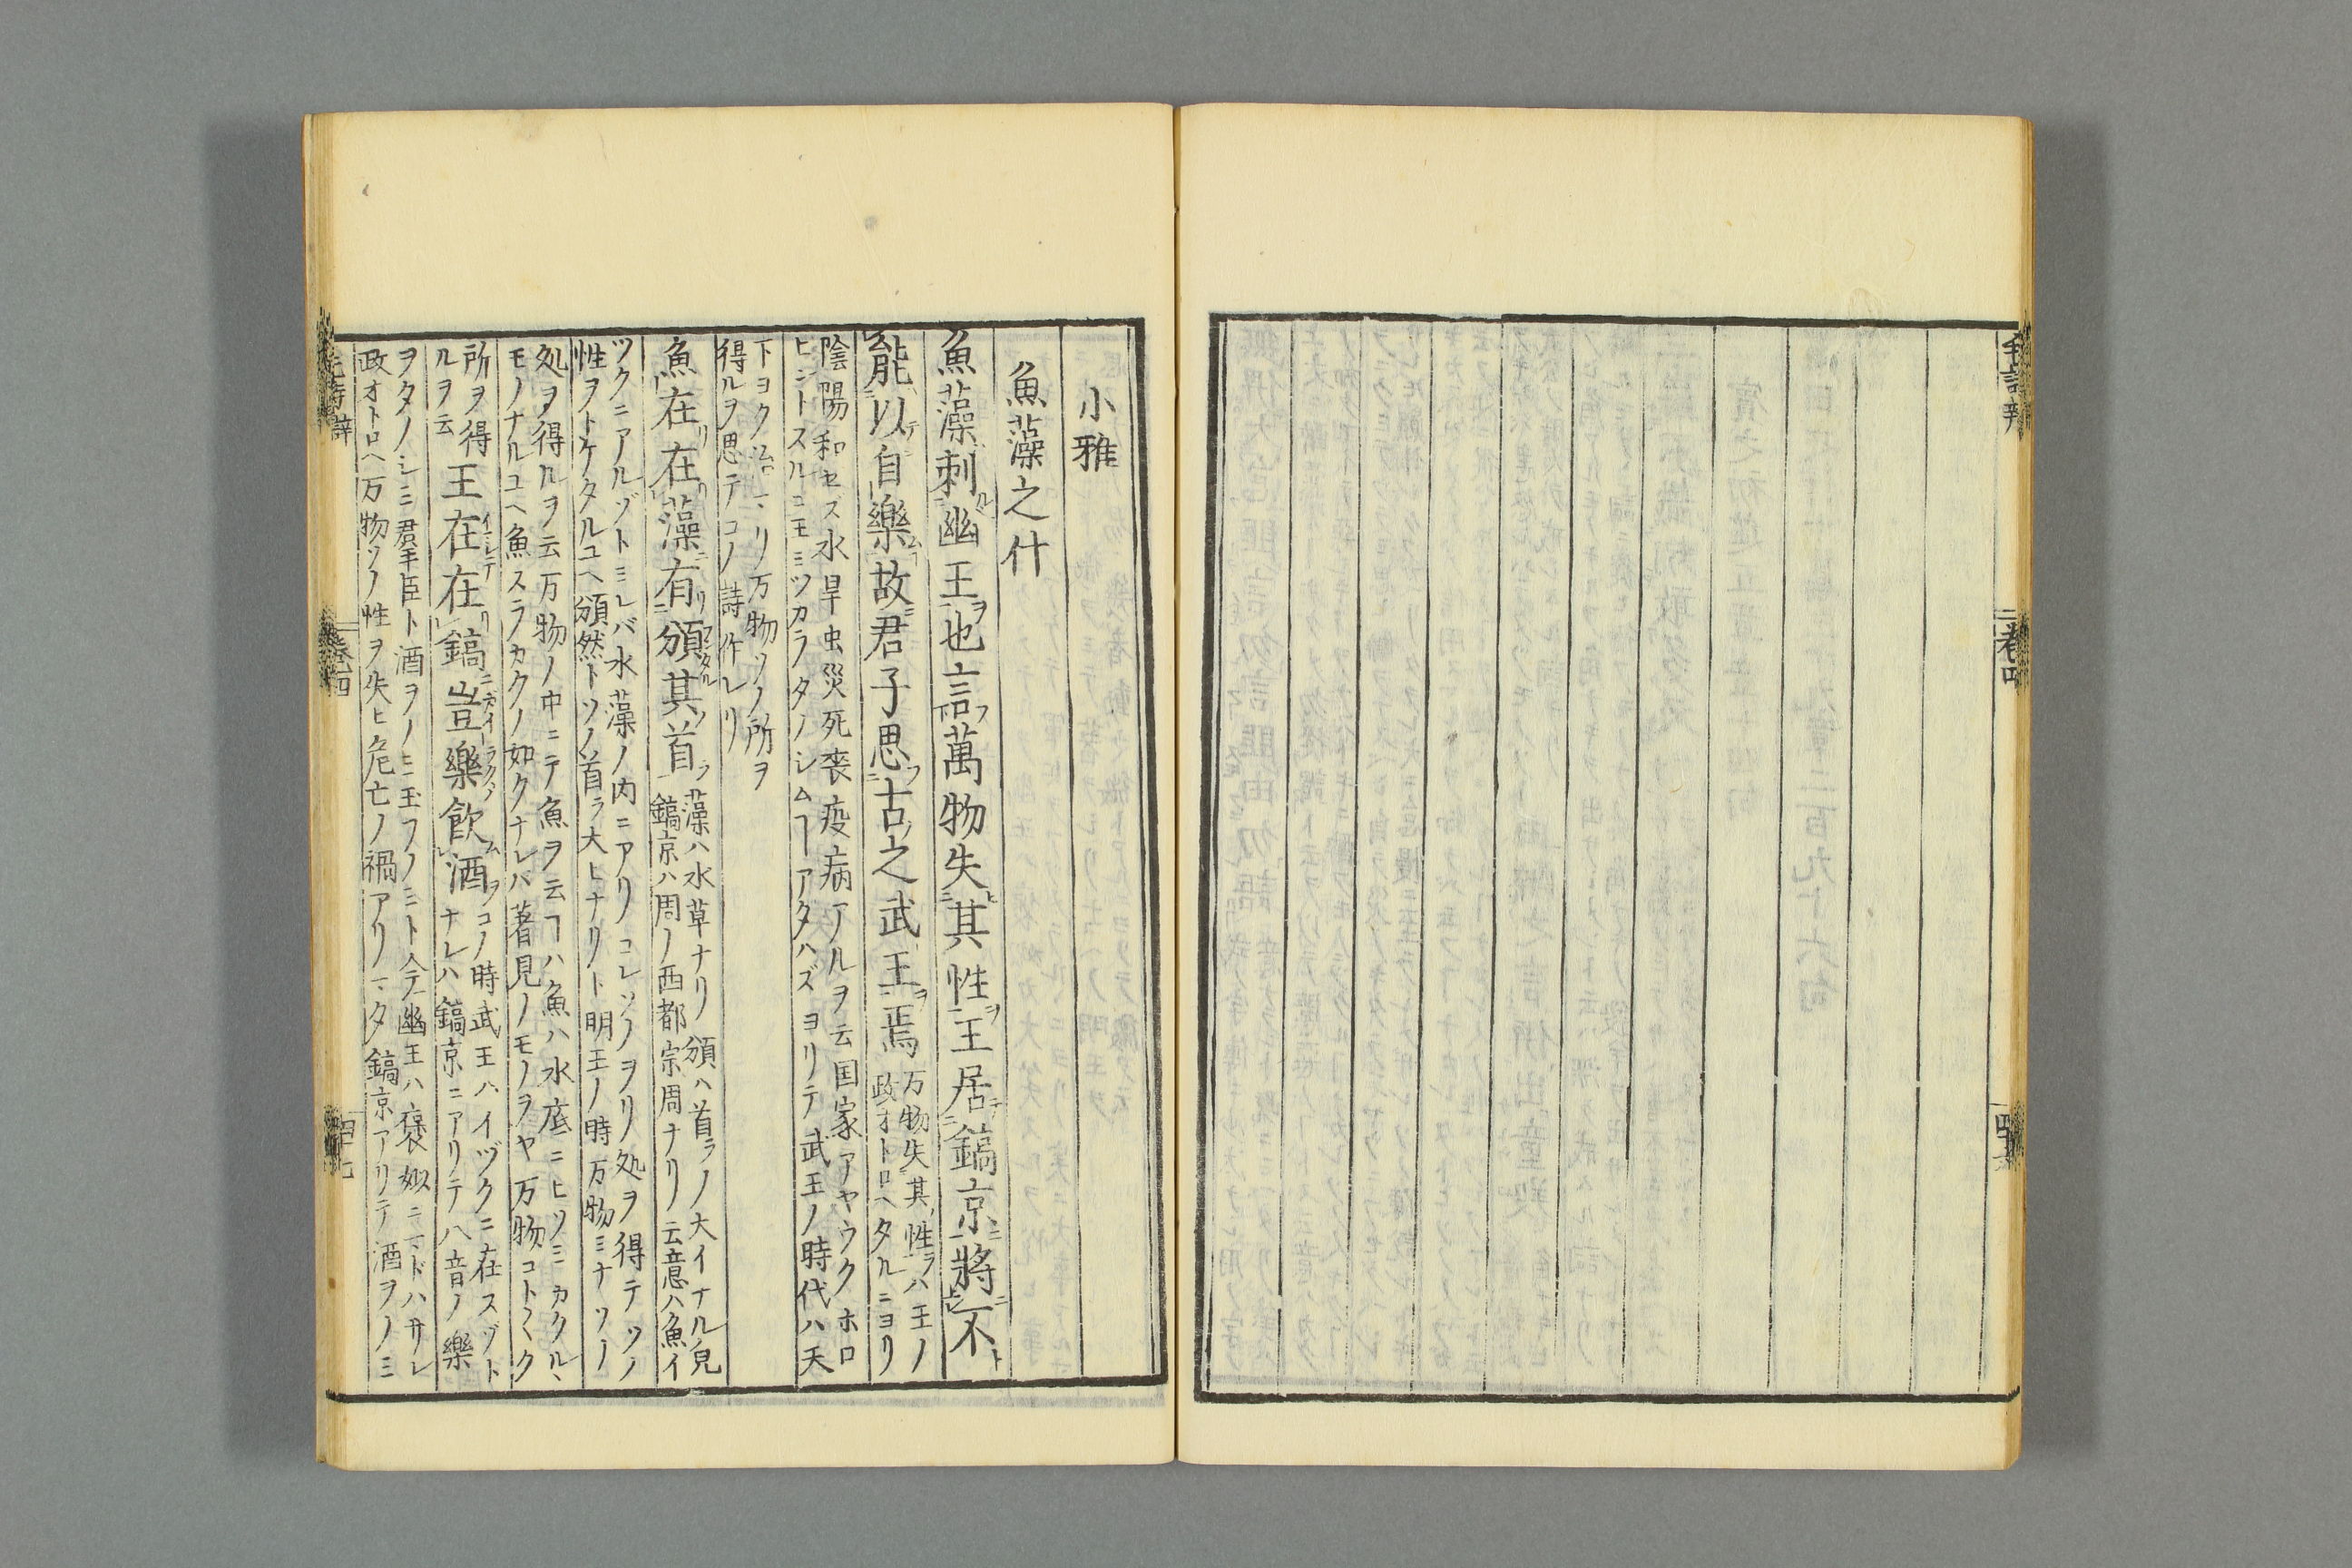 毛詩辨
卷四
小雅
魚藻之什
魚藻刺幽王也言萬物失其性王居鎬京將不
能以自樂故君子思古之武王焉
万物失其性ラハ王ノ
政オトロヘタルニヨリ
陰陽和セズ水旱虫災死喪疫病アルヲ云国家アヤウクホロ
ヒントスルニ王ミツカラタノシムヿアタハズヨリテ武王ノ時代ハ天
下ヨク治マリ万物ソノ所ヲ
得ルヲ思テコノ詩作レリ
魚在在藻有頒其首
藻ハ水草ナリ頒ハ首ラノ大イナル皃
鎬京ハ周ノ西都宗周ナリ云意ハ魚イ
ツクニアルゾトミレバ水藻ノ内ニアリコレソノヲリ処ヲ得テソノ
性ヲトケタルユヘ頒然トソノ首ラ大ヒナリト明王ノ時万物ミナソノ
処ヲ得ルヲ云万物ノ中ニテ魚ヲ云ヿハ魚ハ水底ニヒソミカクルヽ
モノナルユヘ魚スラカクノ如クナレバ著見ノモノヲヤ万物コト〱ク
所ヲ得
ルヲ云
王在在鎬豈樂飲酒
コノ時武王ハイヅクニ在スゾト
ナレハ鎬京ニアリテ八音ノ樂
ヲタノシミ群臣ト酒ヲノミ玉フノミト今幽王ハ褒姒ニマドハサレ
政オトロヘ万物ソノ性ヲ失ヒ危亡ノ禍アリマタ鎬京アリテ酒ヲノミ
毛詩辨
卷四